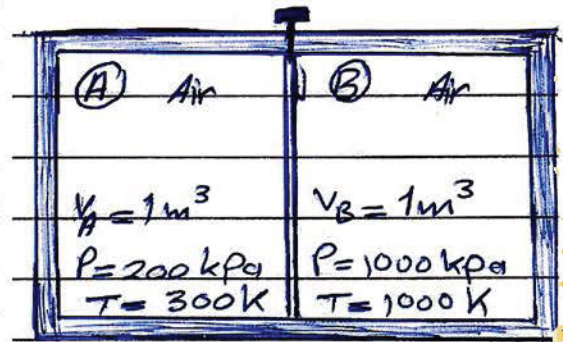 Ⓐ Air
V_A = 1m³
P = 200 kPa
T = 300K
Ⓑ Air
V_B = 1m³
P = 1000 kPa
T = 1000 K